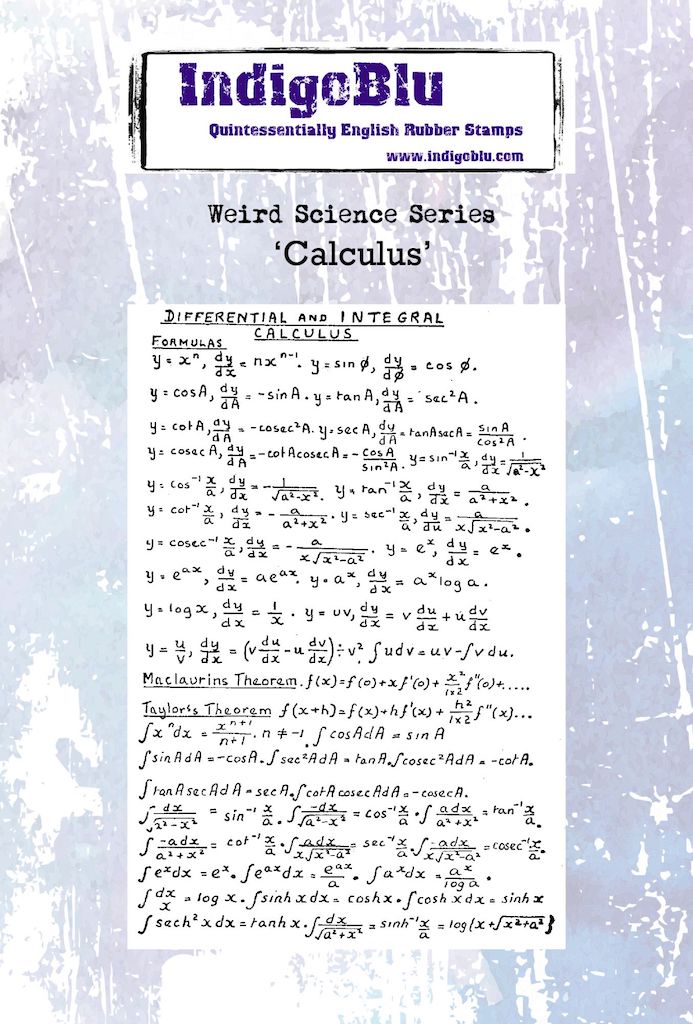 IndigoBlu
Quintessentially English Rubber Stamps
www.indigoblu.com
Weird Science Series
‘Calculus’
DIFFERENTIAL AND INTEGRAL
CALCULUS
FORMULAS
y = xⁿ, dy/dx = nxⁿ⁻¹. y = sin ø, dy/dø = cos ø.
y = cosA, dy/dA = -sinA. y = tanA, dy/dA = sec²A.
y = cotA, dy/dA = -cosec²A. y = secA, dy/dA = tanAsecA = sinA/cos²A.
y = cosecA, dy/dA = -cotAcosecA = -cosA/sin²A. y = sin⁻¹ x/a, dy/dx = 1/√(a²-x²)
y = cos⁻¹ x/a, dy/dx = -1/√(a²-x²). y = tan⁻¹ x/a, dy/dx = a/(a²+x²).
y = cot⁻¹ x/a, dy/dx = -a/(a²+x²). y = sec⁻¹ x/a, dy/du = a/(x√(x²-a²)).
y = cosec⁻¹ x/a, dy/dx = -a/(x√(x²-a²)). y = eˣ, dy/dx = eˣ.
y = eᵃˣ, dy/dx = aeᵃˣ. y = aˣ, dy/dx = aˣ log a.
y = log x, dy/dx = 1/x. y = uv, dy/dx = v du/dx + u dv/dx
y = u/v, dy/dx = (v du/dx - u dv/dx) ÷ v². ∫udv = uv - ∫vdu.
Maclaurins Theorem. f(x) = f(0) + xf'(0) + x²/1×2 f"(0) + ....
Taylor's Theorem f(x+h) = f(x) + hf'(x) + h²/1×2 f"(x)...
∫xⁿdx = xⁿ⁺¹/n+1. n ≠ -1. ∫cosAdA = sinA
∫sinAdA = -cosA. ∫sec²AdA = tanA. ∫cosec²AdA = -cotA.
∫tanAsecAdA = secA. ∫cotAcosecAdA = -cosecA.
∫dx/√(a²-x²) = sin⁻¹ x/a. ∫-dx/√(a²-x²) = cos⁻¹ x/a. ∫adx/(a²+x²) = tan⁻¹ x/a.
∫-adx/(a²+x²) = cot⁻¹ x/a. ∫adx/(x√(x²-a²)) = sec⁻¹ x/a. ∫-adx/(x√(x²-a²)) = cosec⁻¹ x/a.
∫eˣdx = eˣ. ∫eᵃˣdx = eᵃˣ/a. ∫aˣdx = aˣ/log a.
∫dx/x = log x. ∫sinh x dx = cosh x. ∫cosh x dx = sinh x
∫sech² x dx = tanh x. ∫dx/√(a²+x²) = sinh⁻¹ x/a = log{x+√(x²+a²)}